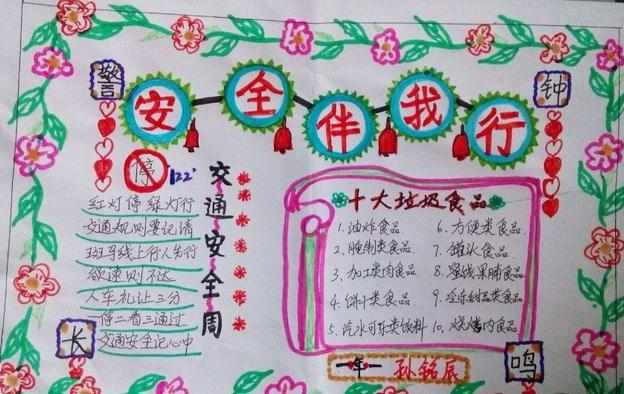 警
钟
安全伴我行
停
122
交通安全周
红灯停绿灯行
交通规则要记清
斑马线上行人先行
欲速则不达
人车礼让三分
一停二看三通过
交通安全记心中
十大垃圾食品
1.油炸食品
2.腌制类食品
3.加工类肉食品
4.饼干类食品
5.汽水可乐类饮料
6.方便类食品
7.罐头食品
8.蜜饯果脯食品
9.冷冻甜品类食品
10.烧烤肉食品
长
鸣
一年一